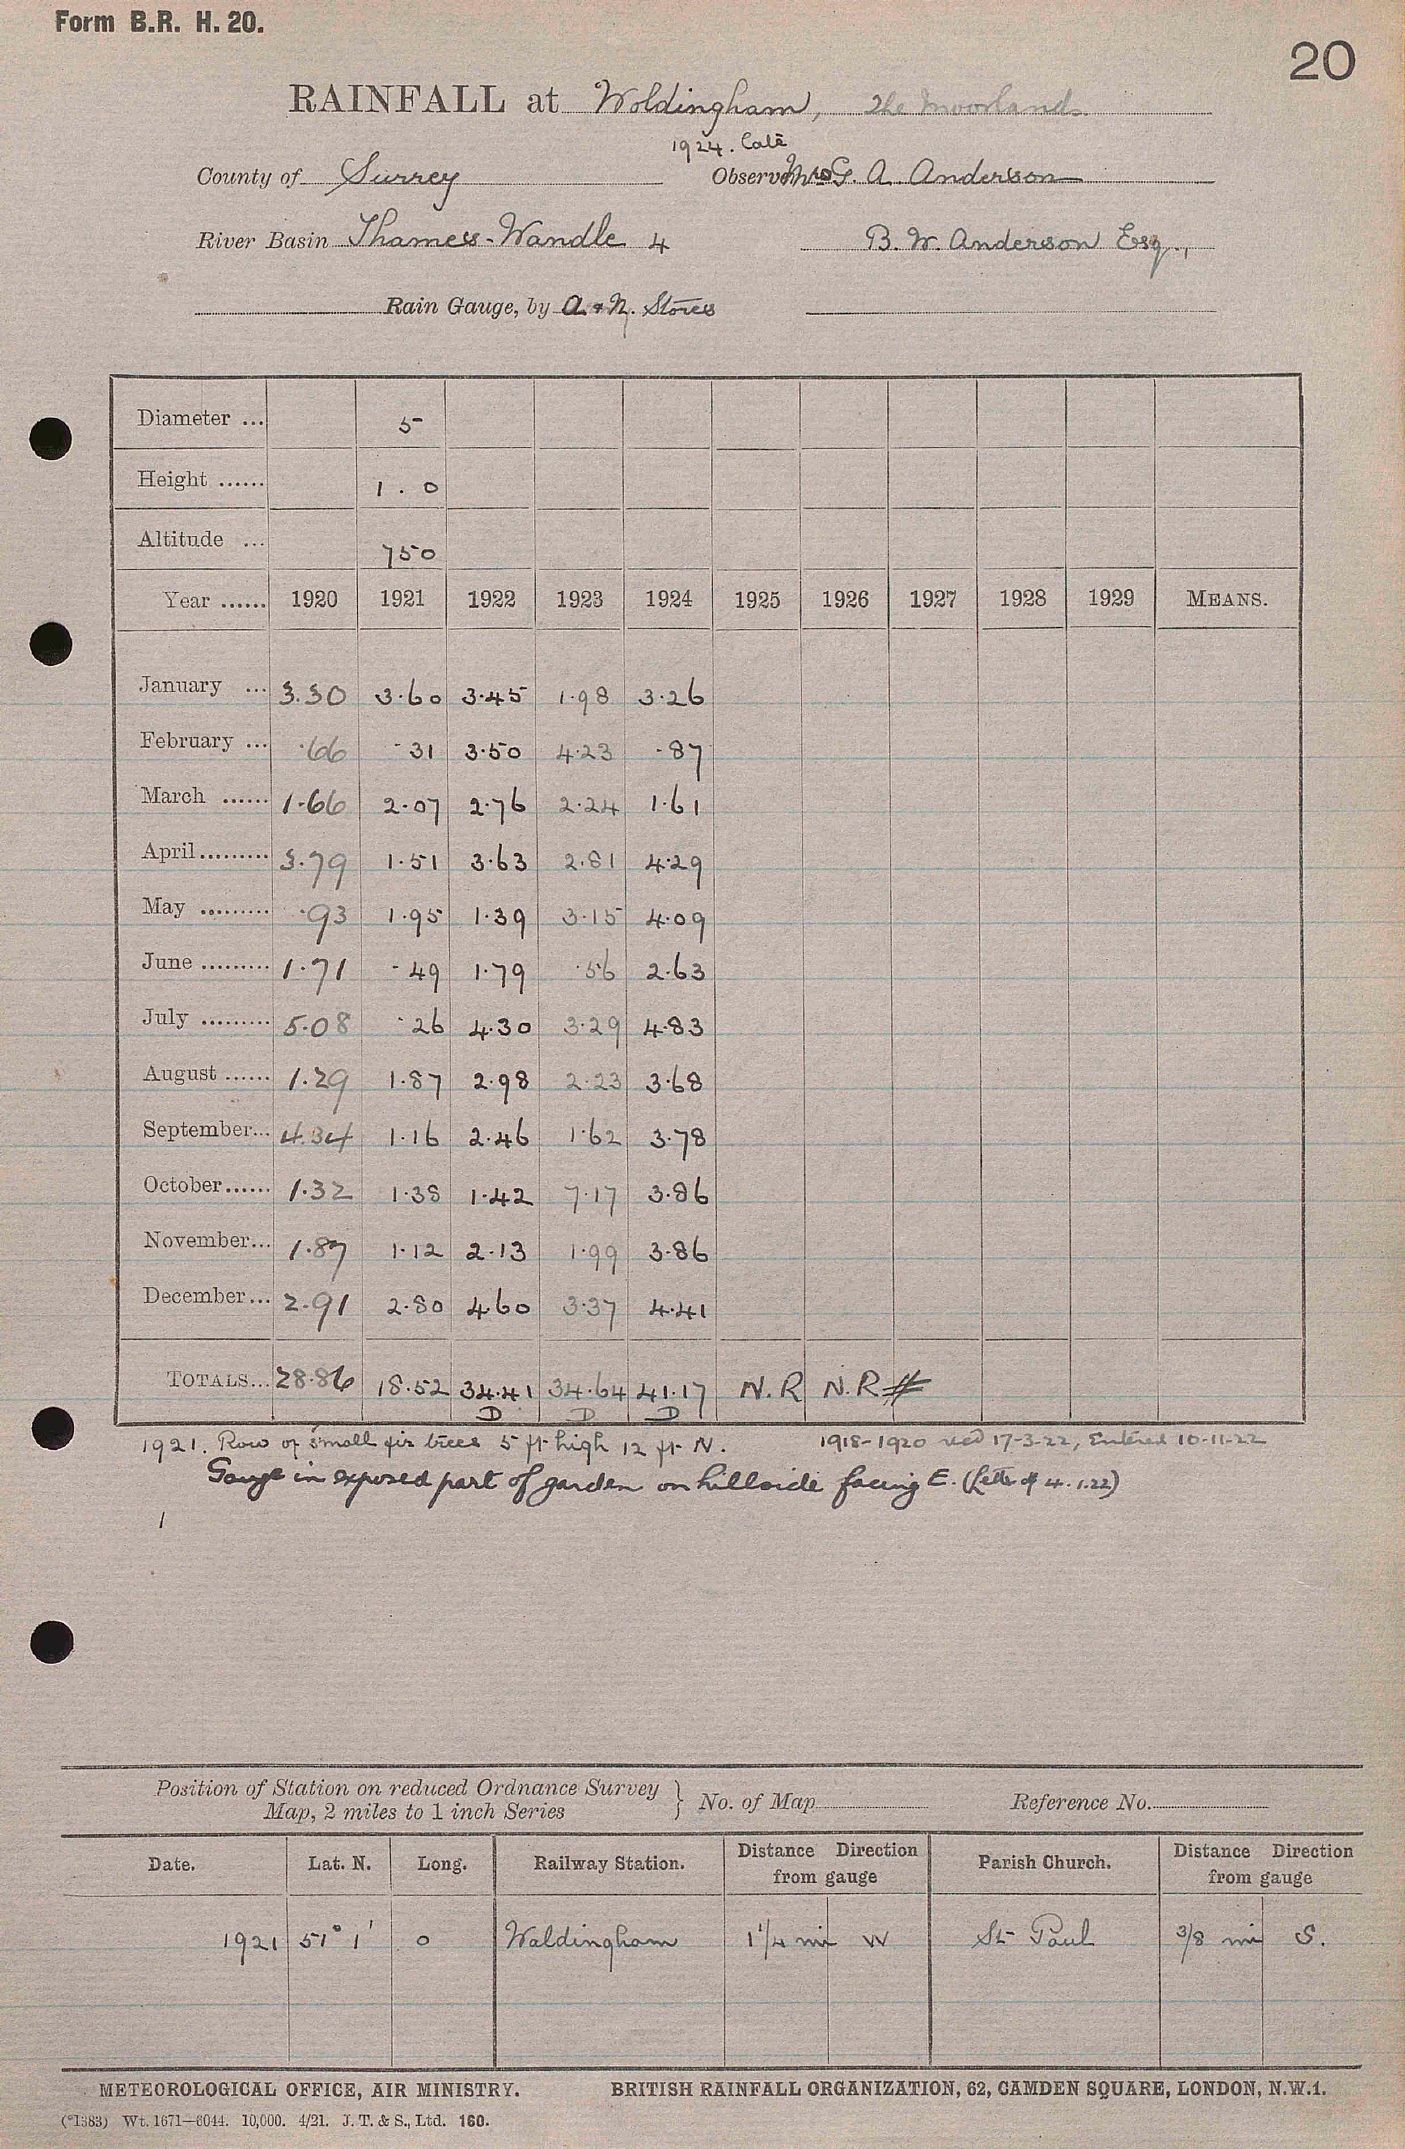 Form B.R. H. 20.
20
RAINFALL at Woldingham, The Moorlands
1924. Late
County of Surrey Observer Mrs G. A. Anderson
River Basin Thames-Wandle 4 B. W. Anderson Esq.,
Rain Gauge, by A & N. Stores
Diameter ... 5
Height ...... 1 . 0
Altitude ... 750
Year ...... 1920 1921 1922 1923 1924 1925 1926 1927 1928 1929 MEANS.
January ... 3.30 3.60 3.45 1.98 3.26
February ... .66 .31 3.50 4.23 .87
March ...... 1.66 2.07 2.76 2.24 1.61
April......... 3.79 1.51 3.63 2.81 4.29
May ......... .93 1.95 1.39 3.15 4.09
June ......... 1.71 .49 1.79 .56 2.63
July ......... 5.08 .26 4.30 3.29 4.83
August ...... 1.29 1.87 2.98 2.23 3.68
September... 4.34 1.16 2.46 1.62 3.78
October...... 1.32 1.38 1.42 7.17 3.86
November... 1.87 1.12 2.13 1.99 3.86
December... 2.91 2.80 4.60 3.37 4.41
TOTALS... 28.86 18.52 34.41 34.64 41.17 N.R N.R #
D D D
1921. Row of small fir trees 5 ft high 12 ft N. 1918-1920 recd 17-3-22, Entered 10-11-22
Gauge in exposed part of garden on hillside facing E. (Letter of 4.1.22)
1
Position of Station on reduced Ordnance Survey
Map, 2 miles to 1 inch Series } No. of Map Reference No.
Date. Lat. N. Long. Railway Station. Distance Direction from gauge Parish Church. Distance Direction from gauge
1921 51° 1' 0 Waldingham 1 1/4 mi W St Paul 3/8 mi S.
METEOROLOGICAL OFFICE, AIR MINISTRY. BRITISH RAINFALL ORGANIZATION, 62, CAMDEN SQUARE, LONDON, N.W.1.
(*1383) Wt. 1671—6044. 10,000. 4/21. J. T. & S., Ltd. 160.